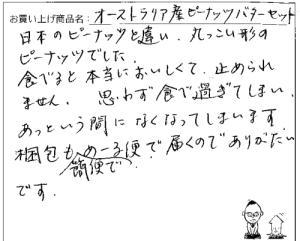 お買い上げ商品名：オーストラリア産ピーナッツバターセット
日本のピーナッツと違い、丸っこい形の
ピーナッツでした。
食べると本当においしくて、止められ
ません。思わず食べ過ぎてしまい、
あっという間になくなってしまいます。
梱包もめーる便で届くのでありがたい
簡便で、
です。